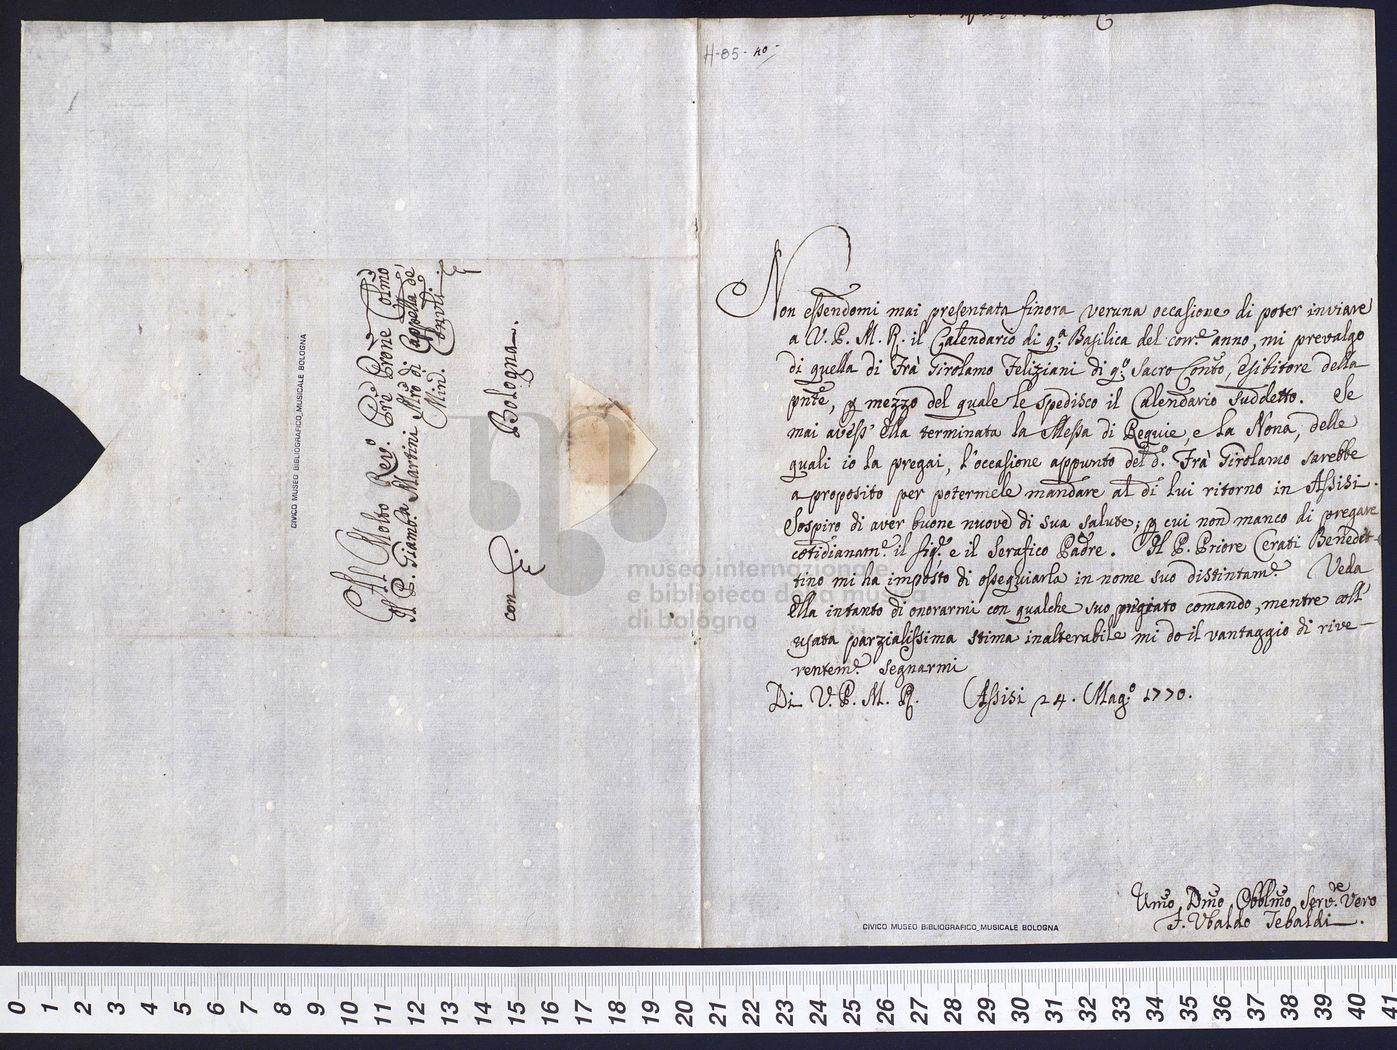 H-85-40-
Non essendomi mai presentata finora veruna occasione di poter inviare
a V. P. M. R. il Calendario di q.a Basilica del corr.e anno, mi prevalgo
di quella di Frà Girolamo Feliziani di q.o Sacro Conto, esibitore della
pnte, p mezzo del quale le spedisco il Calendario suddetto. Se
mai avess' ella terminata la Messa di Requie, e la Nona, delle
quali io la pregai, l'occasione appunto del d.o Frà Girolamo sarebbe
a proposito per potermele mandare al di lui ritorno in Assisi.
Sospiro di aver buone nuove di sua salute; p cui non manco di pregare
cotidianam.e il Sig.e e il Serafico Padre. Il P. Priore Cerati Benedet-
tino mi ha imposto di ossequiarla in nome suo distintam.e Veda
ella intanto di onorarmi con qualche suo pregiato comando, mentre coll'
usata parzialissima stima inalterabile mi do il vantaggio di rive-
rentem.e segnarmi
Di V. P. M. R. Assisi 24. Mag.o 1770.
Umo Dmo Obblmo Serv.re Vero
F. Ubaldo Tebaldi.
CIVICO MUSEO BIBLIOGRAFICO MUSICALE BOLOGNA
Al Molto Rev.o Pre Prone Colmo
Il P. Giamb.a Martini Mro di Cappella de'
Min. Convli
Bologna.
con
CIVICO MUSEO BIBLIOGRAFICO MUSICALE BOLOGNA
museo internazionale
e biblioteca della musica
di bologna
0 1 2 3 4 5 6 7 8 9 10 11 12 13 14 15 16 17 18 19 20 21 22 23 24 25 26 27 28 29 30 31 32 33 34 35 36 37 38 39 40 41